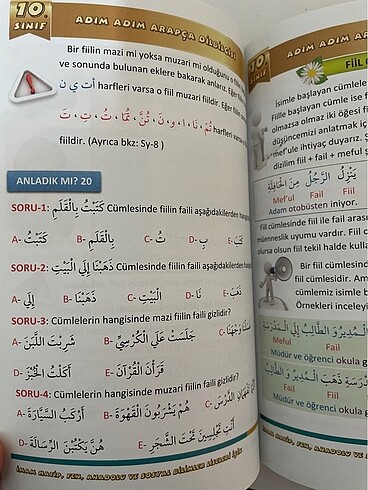 10
SINIF
ADIM ADIM ARAPÇA DİLBİLGİSİ
Bir fiilin mazi mi yoksa muzari mi olduğunu
ve sonunda bulunan eklere bakarak anlarız. Eğer
أ ت ي ن harfleri varsa o fiil muzari fiildir. Eğer
تُمْ ، نَا ، ا ، و ، نَ ، تُنَّ ، تُمَا ، تُ ، تِ ، تَ harfleri
fiildir. (Ayrıca bkz: Sy-8 )
ANLADIK MI? 20
SORU-1: كَتَبْتُ بِالْقَلَمِ Cümlesinde fiilin faili aşağıdakilerden
A- كَتَبْتُ B- بِالْقَلَمِ C- تُ D- بِ E- كَتَبَ
SORU-2: ذَهَبْنَا إِلَي الْبَيْتِ Cümlesinde fiilin faili aşağıdakilerden
A- إِلَي B- ذَهَبْنَا C- الْبَيْتِ D- نَا E- ذَهَبَ
SORU-3: Cümlelerin hangisinde mazi fiilin faili gizlidir?
A- شَرِبْتُ اللَّبَنَ B- جَلَسَتْ عَلَي الْكُرْسِيِّ C-
D- أَكَلْتُ الْخُبْزَ E- قَرَأْنَ الْقُرْآنَ
SORU-4: Cümlelerin hangisinde muzari fiilin faili gizlidir?
A- أَرْكَبُ السَّيَّارَةَ B- هُمْ يَشْرَبُونَ الْقَهْوَةَ C- الدَّرْسَ
D- هُنَّ يَكْتُبْنَ الرِّسَالَةَ E- أَنْتِ تَجْلِسِينَ تَحْتَ الشَّجَرِ
İMAM HATİP, FEN, ANADOLU VE SOSYAL BİLİMLER LİSELERİ İÇİN
10
SINIF
ADIM ADIM
FİİL
İsimle başlayan cümlele
Fiille başlayan cümle ise f
olmazsa olmaz iki öğesi f
düşüncemizi anlatmak iç
mef'ule ihtiyaç duyarız. 
dizilim fiil + fail + meful ş
يَنْزِلُ الرَّجُلُ مِنَ الْحَافِلَةِ
Mef'ul Fail Fiil
Adam otobüsten iniyor.
Fiil cümlesinde fiil ile fail arası
müenneslik uyumu vardır. Fiil c
olursa olsun fiil tekil halde kulla
Bir fiil cümlesind
fiil cümlesidir. Am
cümlemiz isimle b
Örnekleri inceleyi
الْمُدِيرُ وَ الطَّالِبُ إِلَي الْمَدْرَسَةِ
Meful Fail
Müdür ve öğrenci okula g
ذَهَبَ الْمُدِيرُ وَ الطَّالِبُ
Fail Fiil
Müdür ve öğrenci okula
İMAM HATİP, FEN, ANADOLU VE